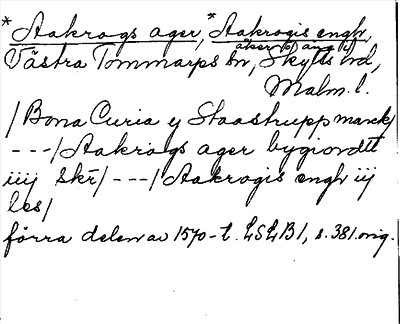 *Aakrogs ager, *Aakrogis engh,
åker o. äng i
Västra Tommarps sn, Skytts hd,
Malm. l.
/Bona Curia y Staastrupp marck/
---/Aakrogs ager bygiordtt
iiij Skr/---/Aakrogis engh iij
les/
förra delen av 1570-t. LSLB1, s. 381. orig.